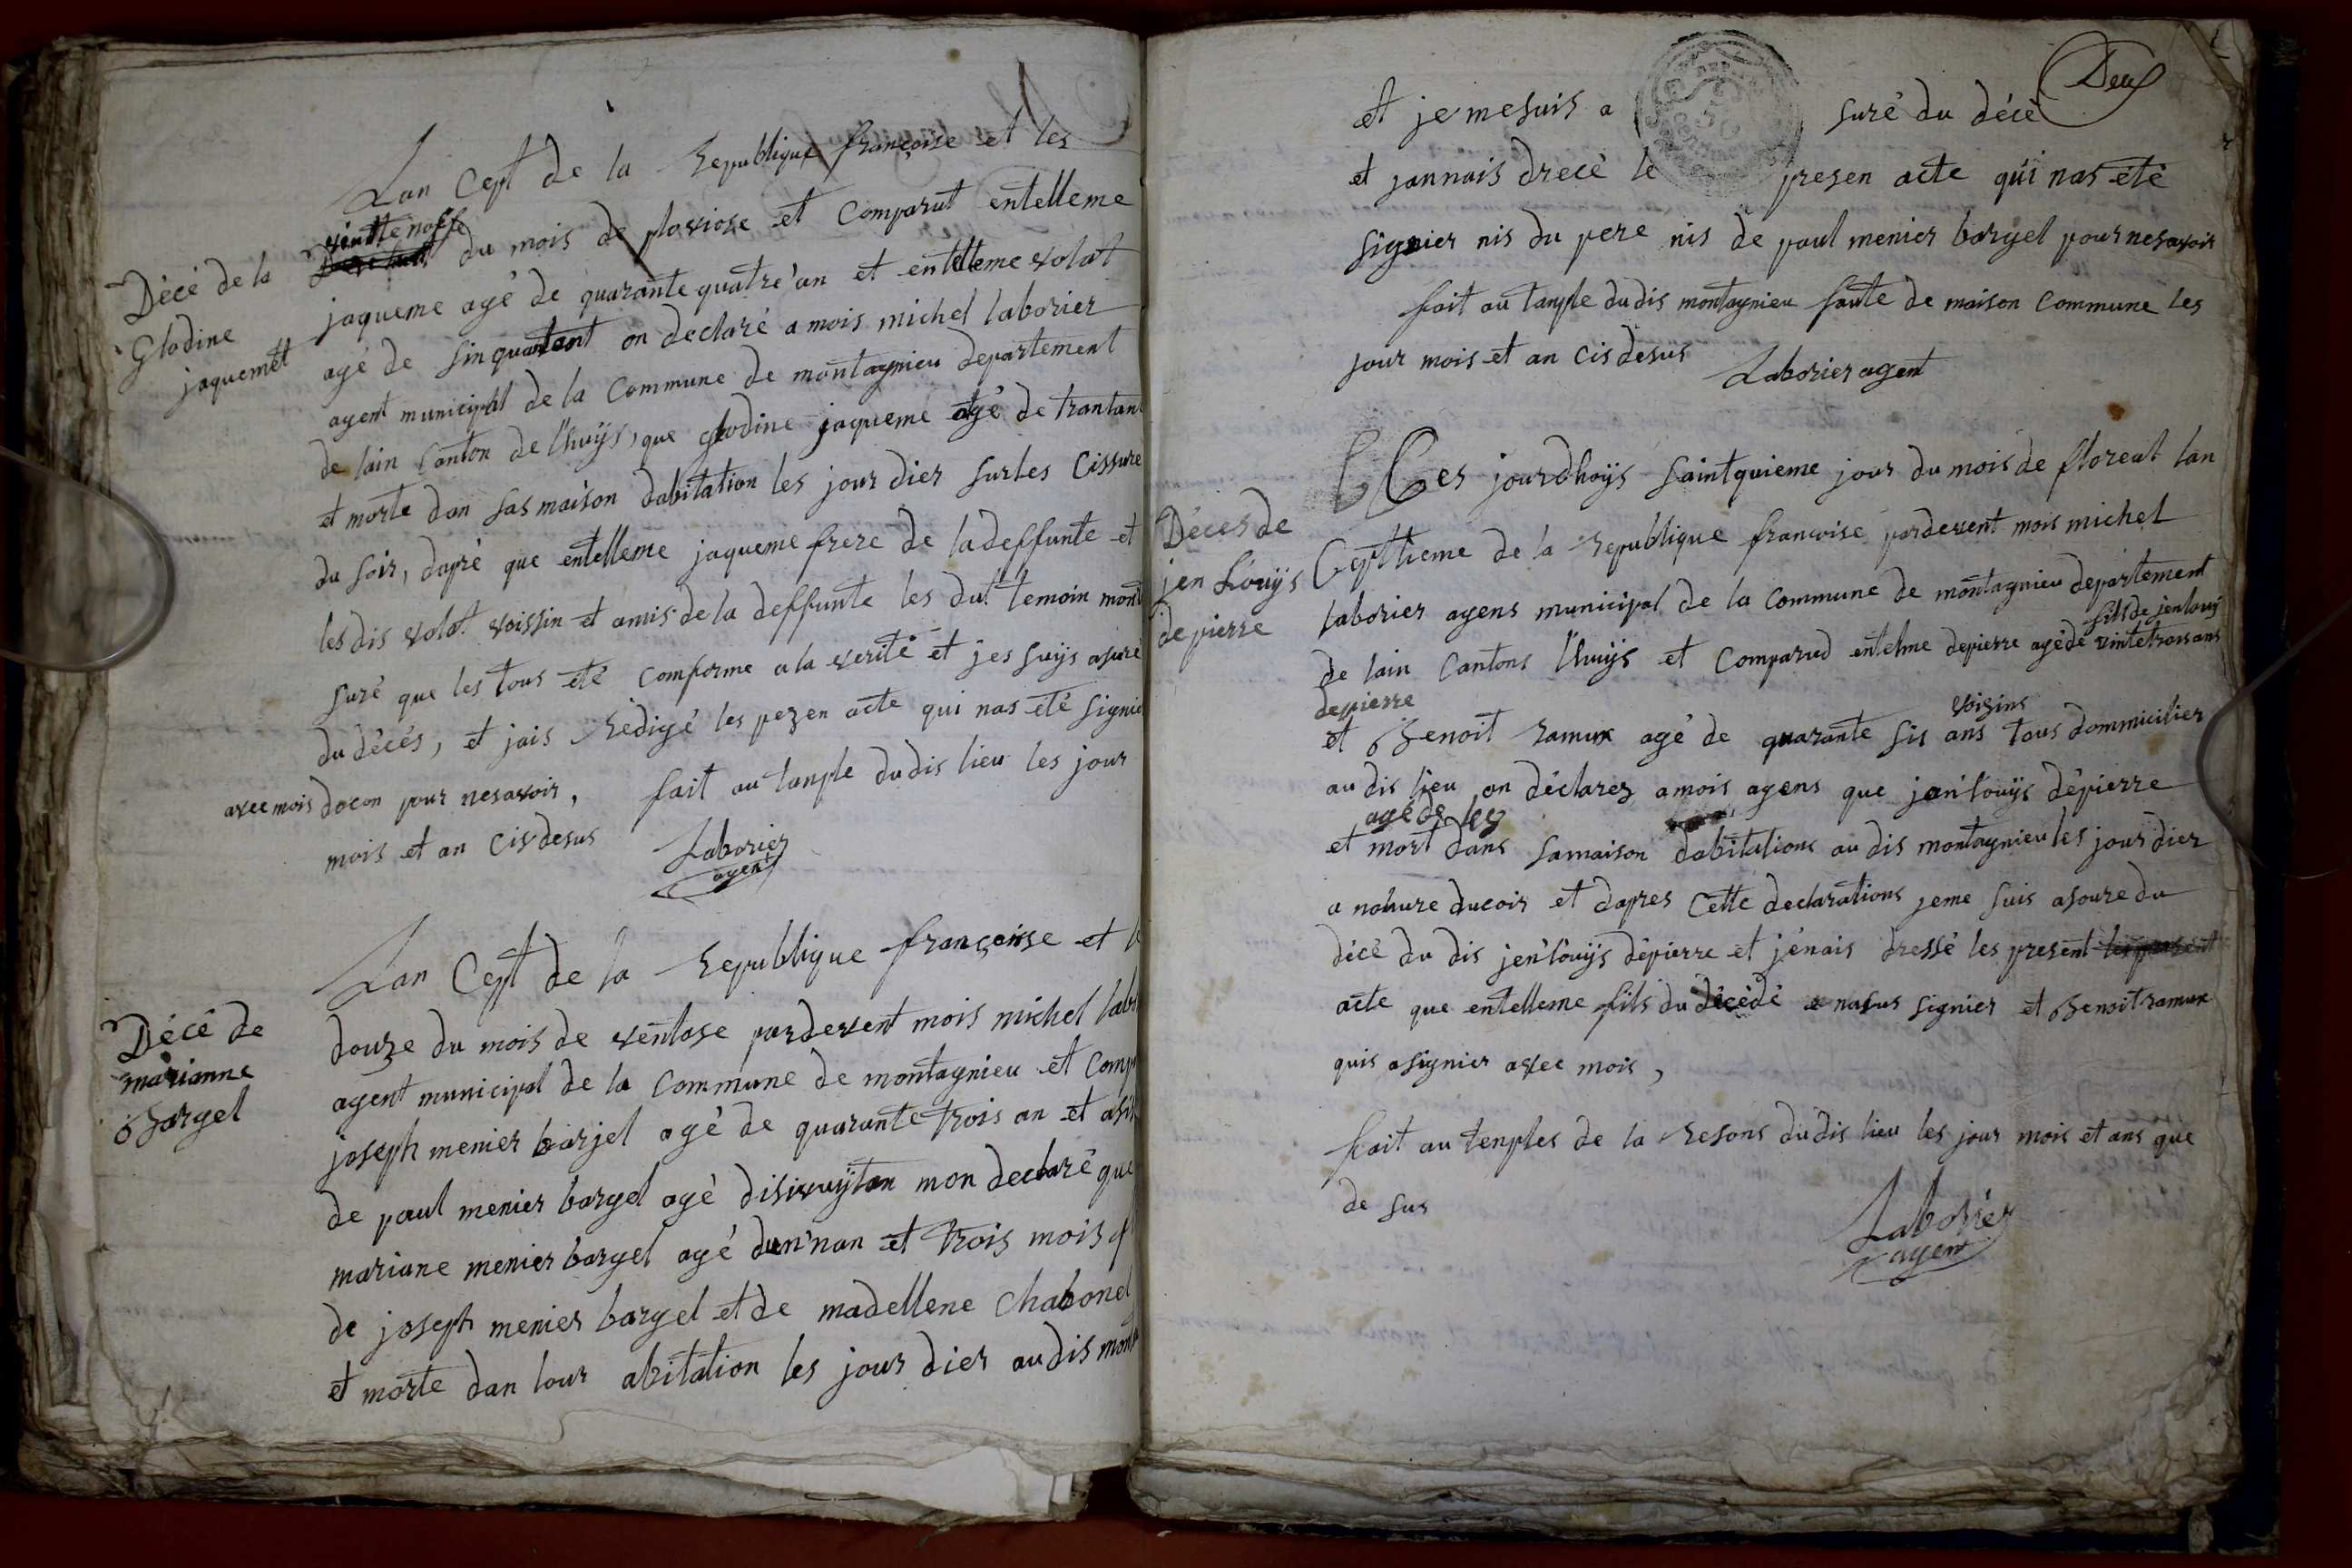 Lan Cept de la republique françoise et les
vintte noffe
du mois de plovioze et Comparut entelleme
Décé de la
Glodine
jaquemet
jaqueme agé de quarante quatre an et entelleme volat
agé de sinquantant on declaré a mois michel laborier
agent municipal de la Commune de montagnieu departement
de lain Canton de lhuijs, que glodine jaqueme agé de trantant
et morte dan sas maison dabitation les jour dier surles Cissure
du soir, dapré que entelleme jaqueme frere de ladeffunte et
lesdis volat voissin et amis de la deffunte les dut temoin mont
suré que les tous eté Comforme a la verité et jes suijs asuré
du décés, et jais Redigé les pezen acte qui nas eté signié
avec mois docon pour nesavoir, fait au tanple dudis lieu les jour
mois et an Cisdesus
Laborier
agent
Lan Cept de la republique françoisse et le
Décé de
marianne
Bargel
douze du mois de ventose pardevent mois michel labo
agent municipal de la Commune de montagnieu et Comp
joseph menier barjel agé de quarante trois an et asis
de paul menier bargel agé disivuijtan mon declaré que
mariane menier bargel agé dun'nan et trois mois f
de joseph menier bargel et de madellene Chabonel
et morte dan lour abitation les jour dier audis mont
Deux
et je me suis a suré du décé
et jannais drecé le presen acte qui nas eté
signier nis du pere nis de paul menier bargel pour nesavoir
fait au tanple dudis montagnieu faute de maison Commune les
jour mois et an cisdesus
Laborier agent
Ces jourdhoijs saintquieme jour du mois de floreat lan
Déces de
jen Louijs
depierre
Ceptieme de la republique francoise pardevent mois michel
laborier agens municipal de la Commune de montagnieu departement
fils de jenlouij
de lain Cantons lhuijs et Comparud entelme depierre agé de vintetrois ans
depierre
voizins
et Benoit ramux agé de quarante sis ans tous dommicilier
au dis lieu on déclarez amois agens que jen'louijs dépierre
agé de
et mort dans samaison dabitations au dis montagnieu les jour dier
a nohure ducoir et dapres Cette declarations jeme suis asoure du
décé du dis jen'louijs dépierre et jénais dressé les present les present
acte que entelleme fils du décédé a nasus signier et Benoit ramux
quis asignier avec mois,
fait au tenples de la resons dudis lieu les jour mois et ans que
de sus
Laborier
agent